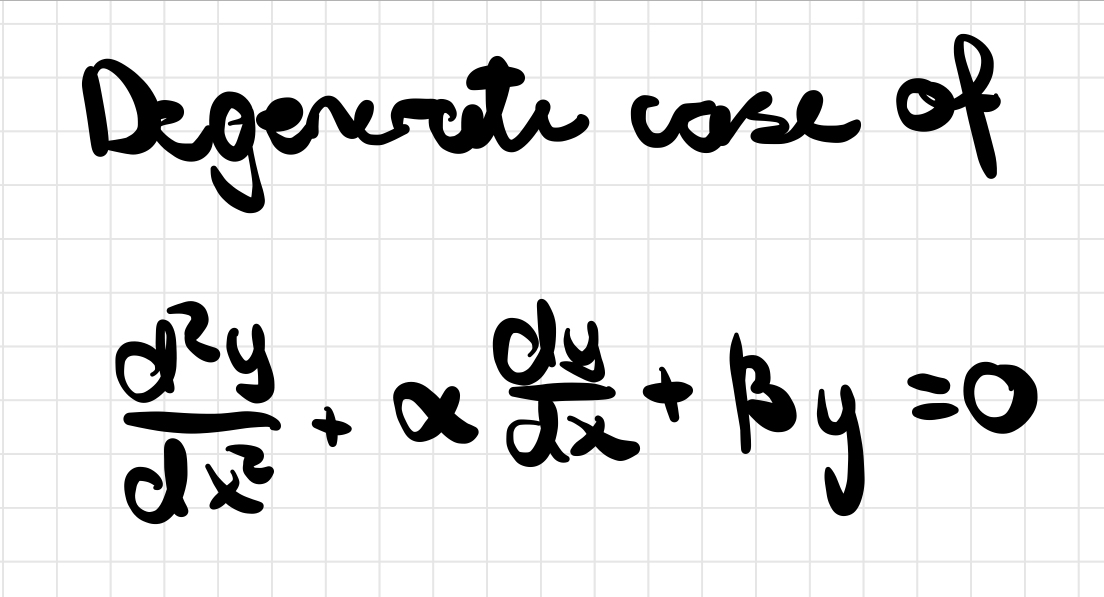 Degenerate case of
d²y/dx² + α dy/dx + βy = 0